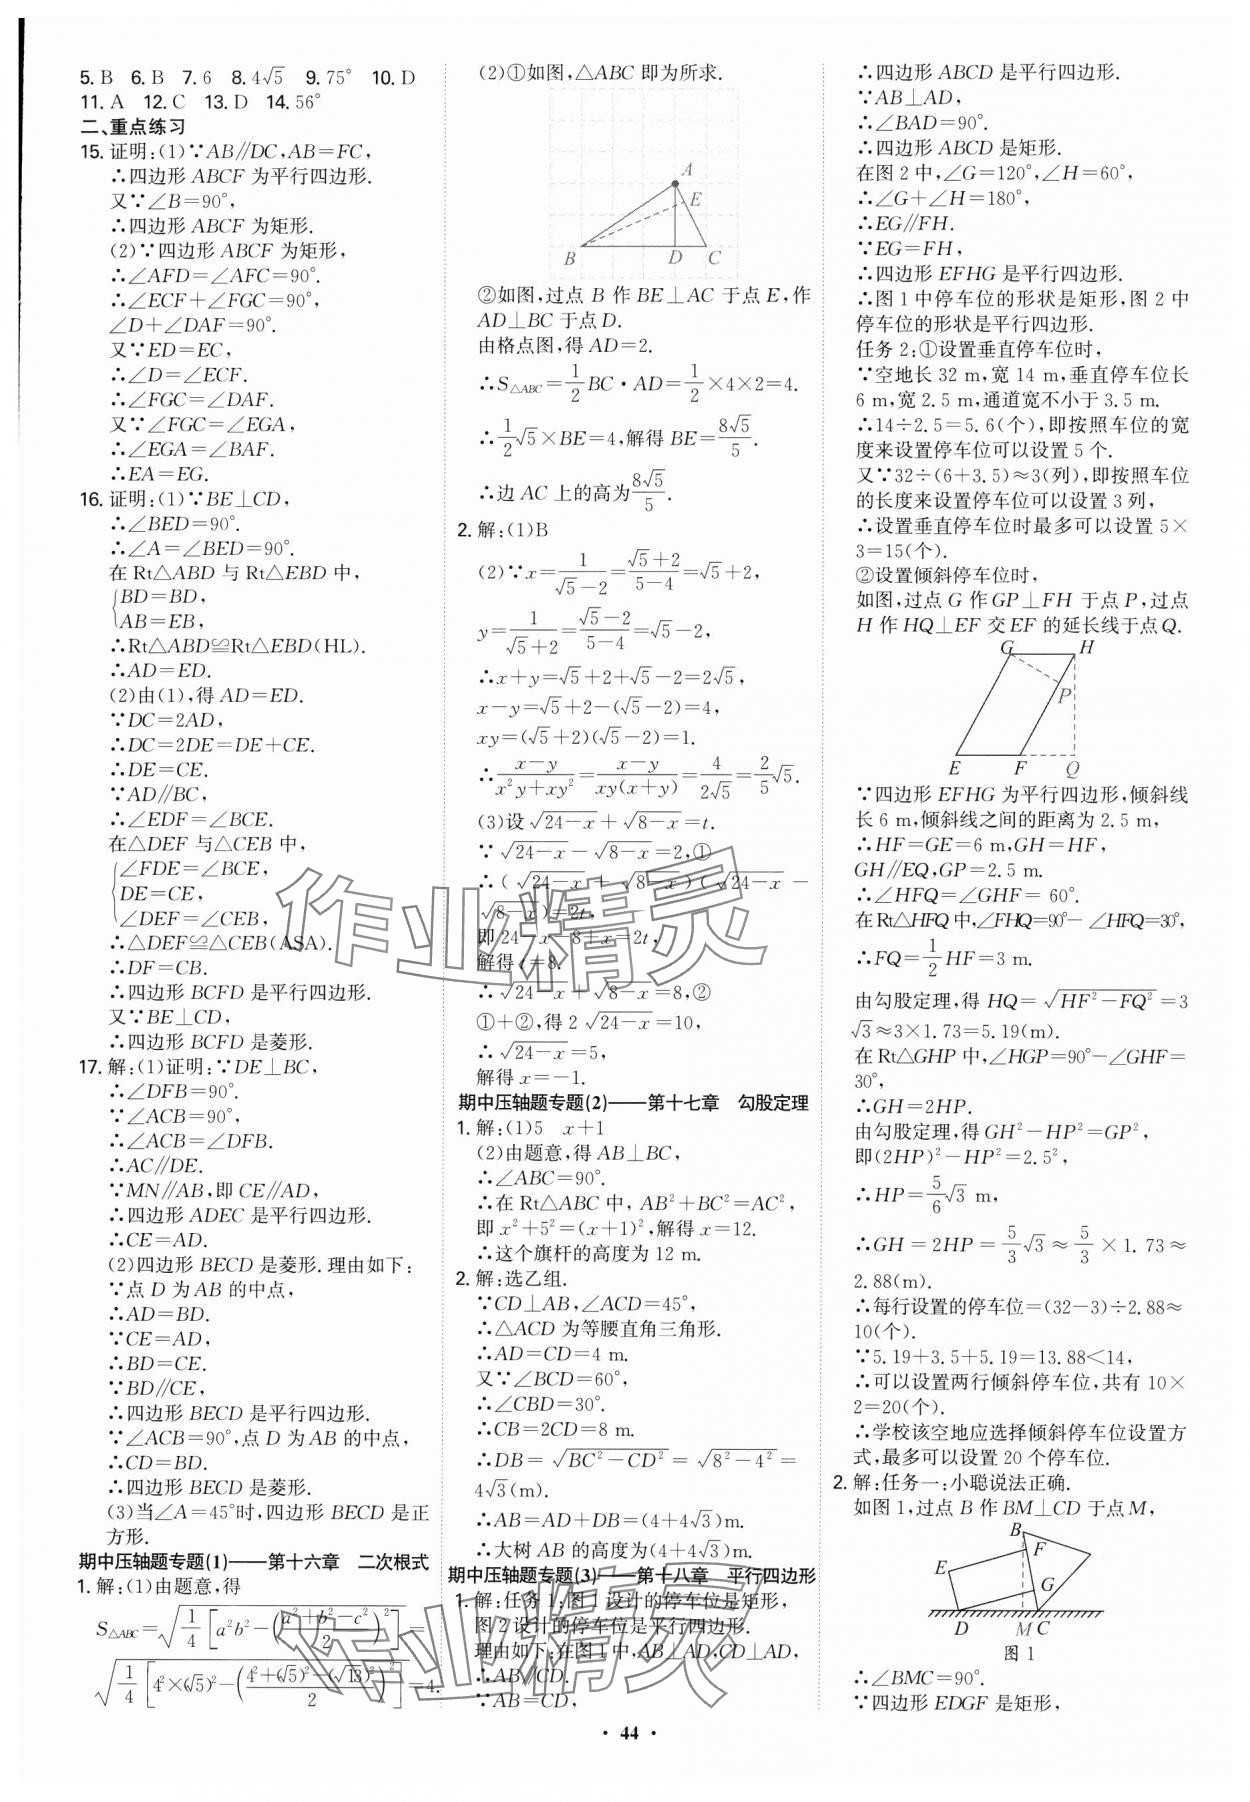 5. B  6. B  7. 6  8. 4√5  9. 75°  10. D
11. A  12. C  13. D  14. 56°
二、重点练习
15. 证明:(1)∵AB∥DC,AB=FC,
∴四边形 ABCF 为平行四边形.
又∵∠B=90°,
∴四边形 ABCF 为矩形.
(2)∵四边形 ABCF 为矩形,
∴∠AFD=∠AFC=90°.
∴∠ECF+∠FGC=90°,
∠D+∠DAF=90°.
又∵ED=EC,
∴∠D=∠ECF.
∴∠FGC=∠DAF.
又∵∠FGC=∠EGA,
∴∠EGA=∠BAF.
∴EA=EG.
16. 证明:(1)∵BE⊥CD,
∴∠BED=90°.
∴∠A=∠BED=90°.
在 Rt△ABD 与 Rt△EBD 中,
{BD=BD,
AB=EB,
∴Rt△ABD≌Rt△EBD(HL).
∴AD=ED.
(2)由(1),得 AD=ED.
∵DC=2AD,
∴DC=2DE=DE+CE.
∴DE=CE.
∵AD∥BC,
∴∠EDF=∠BCE.
在△DEF 与△CEB 中,
{∠FDE=∠BCE,
DE=CE,
∠DEF=∠CEB,
∴△DEF≌△CEB(ASA).
∴DF=CB.
∴四边形 BCFD 是平行四边形.
又∵BE⊥CD,
∴四边形 BCFD 是菱形.
17. 解:(1)证明:∵DE⊥BC,
∴∠DFB=90°.
∵∠ACB=90°,
∴∠ACB=∠DFB.
∴AC∥DE.
∵MN∥AB,即 CE∥AD,
∴四边形 ADEC 是平行四边形.
∴CE=AD.
(2)四边形 BECD 是菱形.理由如下:
∵点 D 为 AB 的中点,
∴AD=BD.
∵CE=AD,
∴BD=CE.
∵BD∥CE,
∴四边形 BECD 是平行四边形.
∵∠ACB=90°,点 D 为 AB 的中点,
∴CD=BD.
∴四边形 BECD 是菱形.
(3)当∠A=45°时,四边形 BECD 是正
方形.
期中压轴题专题(1)——第十六章 二次根式
1. 解:(1)由题意,得
S△ABC=√(1/4[a²b²-((a²+b²-c²)/2)²])=
√(1/4[4²×(√5)²-((4²+(√5)²-(√13)²)/2)²])=4.
(2)①如图,△ABC 即为所求.
A
E
B D C
②如图,过点 B 作 BE⊥AC 于点 E,作
AD⊥BC 于点 D.
由格点图,得 AD=2.
∴S△ABC=1/2 BC·AD=1/2×4×2=4.
∴1/2√5×BE=4,解得 BE=8√5/5.
∴边 AC 上的高为8√5/5.
2. 解:(1)B
(2)∵x=1/(√5-2)=(√5+2)/(5-4)=√5+2,
y=1/(√5+2)=(√5-2)/(5-4)=√5-2,
∴x+y=√5+2+√5-2=2√5,
x-y=√5+2-(√5-2)=4,
xy=(√5+2)(√5-2)=1.
∴(x-y)/(x²y+xy²)=(x-y)/(xy(x+y))=4/(2√5)=2/5√5.
(3)设√(24-x)+√(8-x)=t.
∵√(24-x)-√(8-x)=2,①
∴(√(24-x)+√(8-x))(√(24-x)-
√(8-x))=2t,
即 24-x-8+x=2t,
解得 t=8.
∴√(24-x)+√(8-x)=8,②
①+②,得 2√(24-x)=10,
∴√(24-x)=5,
解得 x=-1.
期中压轴题专题(2)——第十七章 勾股定理
1. 解:(1)5 x+1
(2)由题意,得 AB⊥BC,
∴∠ABC=90°.
∴在 Rt△ABC 中,AB²+BC²=AC²,
即 x²+5²=(x+1)²,解得 x=12.
∴这个旗杆的高度为 12 m.
2. 解:选乙组.
∵CD⊥AB,∠ACD=45°,
∴△ACD 为等腰直角三角形.
∴AD=CD=4 m.
又∵∠BCD=60°,
∴∠CBD=30°.
∴CB=2CD=8 m.
∴DB=√(BC²-CD²)=√(8²-4²)=
4√3(m).
∴AB=AD+DB=(4+4√3)m.
∴大树 AB 的高度为(4+4√3)m.
期中压轴题专题(3)——第十八章 平行四边形
1. 解:任务 1:图 1 设计的停车位是矩形,
图 2 设计的停车位是平行四边形.
理由如下:在图 1 中,AB⊥AD,CD⊥AD,
∴AB∥CD.
∵AB=CD,
∴四边形 ABCD 是平行四边形.
∵AB⊥AD,
∴∠BAD=90°.
∴四边形 ABCD 是矩形.
在图 2 中,∠G=120°,∠H=60°,
∴∠G+∠H=180°,
∴EG∥FH.
∵EG=FH,
∴四边形 EFHG 是平行四边形.
∴图 1 中停车位的形状是矩形,图 2 中
停车位的形状是平行四边形.
任务 2:①设置垂直停车位时,
∵空地长 32 m,宽 14 m,垂直停车位长
6 m,宽 2.5 m,通道宽不小于 3.5 m.
∴14÷2.5=5.6(个),即按照车位的宽
度来设置停车位可以设置 5 个.
又∵32÷(6+3.5)≈3(列),即按照车位
的长度来设置停车位可以设置 3 列,
∴设置垂直停车位时最多可以设置 5×
3=15(个).
②设置倾斜停车位时,
如图,过点 G 作 GP⊥FH 于点 P,过点
H 作 HQ⊥EF 交 EF 的延长线于点 Q.
G H
P
E F Q
∵四边形 EFHG 为平行四边形,倾斜线
长 6 m,倾斜线之间的距离为 2.5 m,
∴HF=GE=6 m,GH=HF,
GH∥EQ,GP=2.5 m.
∴∠HFQ=∠GHF=60°.
在 Rt△HFQ 中,∠FHQ=90°-∠HFQ=30°,
∴FQ=1/2 HF=3 m.
由勾股定理,得 HQ=√(HF²-FQ²)=3
√3≈3×1.73=5.19(m).
在 Rt△GHP 中,∠HGP=90°-∠GHF=
30°,
∴GH=2HP.
由勾股定理,得 GH²-HP²=GP²,
即(2HP)²-HP²=2.5²,
∴HP=5/6√3 m,
∴GH=2HP=5/3√3≈5/3×1.73≈
2.88(m).
∴每行设置的停车位=(32-3)÷2.88≈
10(个).
∵5.19+3.5+5.19=13.88<14,
∴可以设置两行倾斜停车位,共有 10×
2=20(个).
∴学校该空地应选择倾斜停车位设置方
式,最多可以设置 20 个停车位.
2. 解:任务一:小聪说法正确.
如图 1,过点 B 作 BM⊥CD 于点 M,
B
F
E
G
D M C
图 1
∴∠BMC=90°.
∵四边形 EDGF 是矩形,
· 44 ·
作业精灵
作业精灵